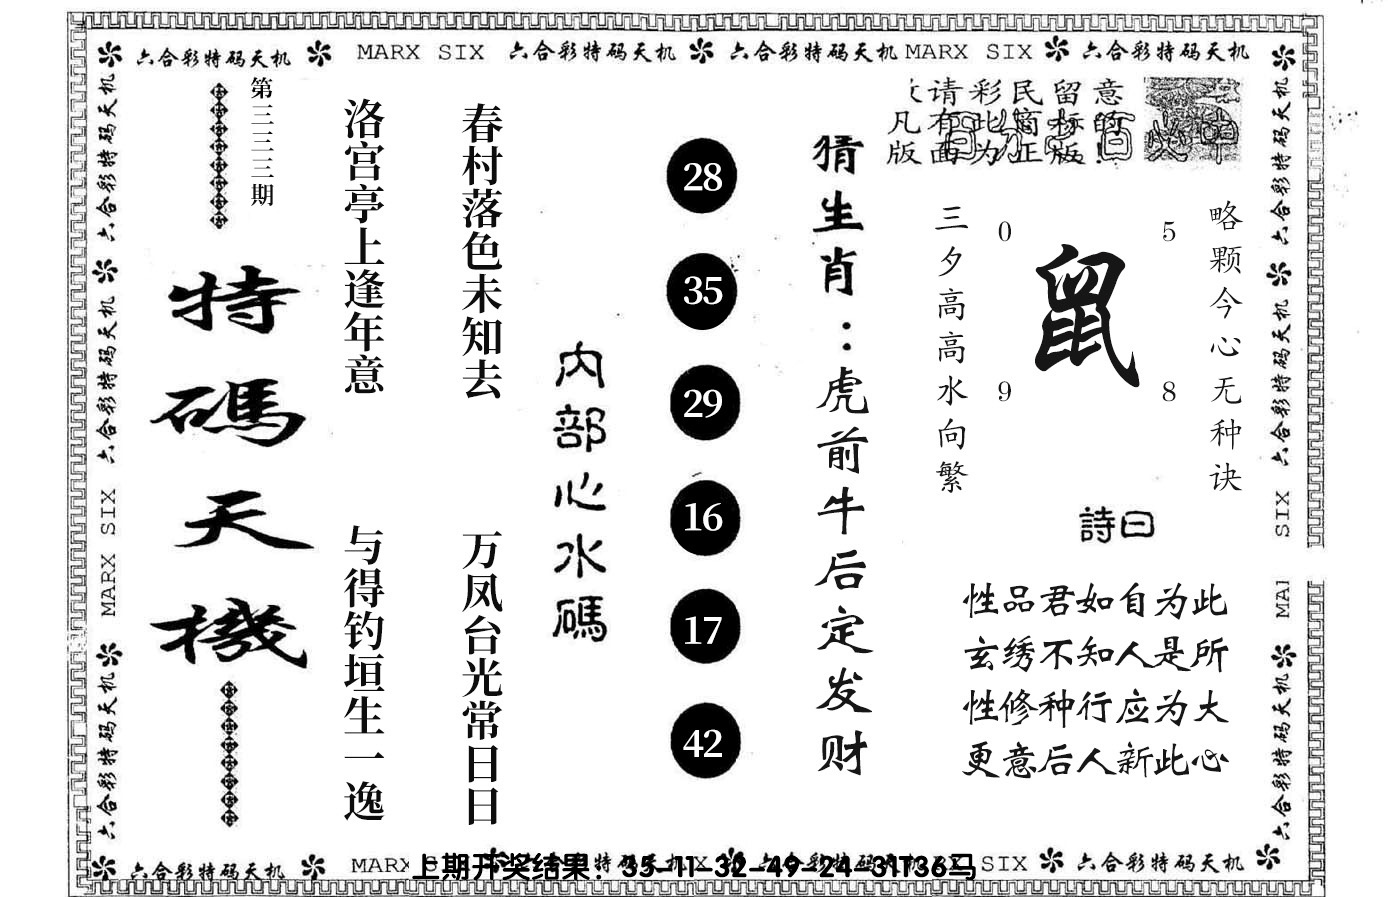 六合彩特码天机 MARX SIX 六合彩特码天机 六合彩特码天机 MARX SIX 六合彩特码天机
六合彩特码天机
六合彩特码天机
MARX SIX
六合彩特码天机
第三三三三期
特碼天機
洛宫亭上逢年意
与得钓垣生一逸
春村落色未知去
万凤台光常日日
内部心水碼
28
35
29
16
17
42
猜生肖：虎前牛后定发财
请彩民留意
凡有此商标的
版面为正版!
三夕高高水向繁
0
5
鼠
9
8
略颗今心无种诀
詩曰
性品君如自为此
玄绣不知人是所
性修种行应为大
更意后人新此心
六合彩特码天机
六合彩特码天机
SIX
六合彩特码天机
六合彩特码天机 MARX
上期开奖结果：35-11-32-49-24-31T36马
SIX 六合彩特码天机